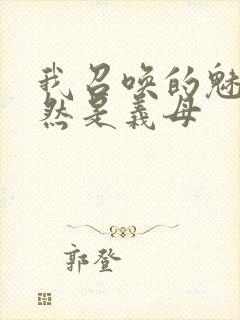 我召唤的魅
然是義母
郭登